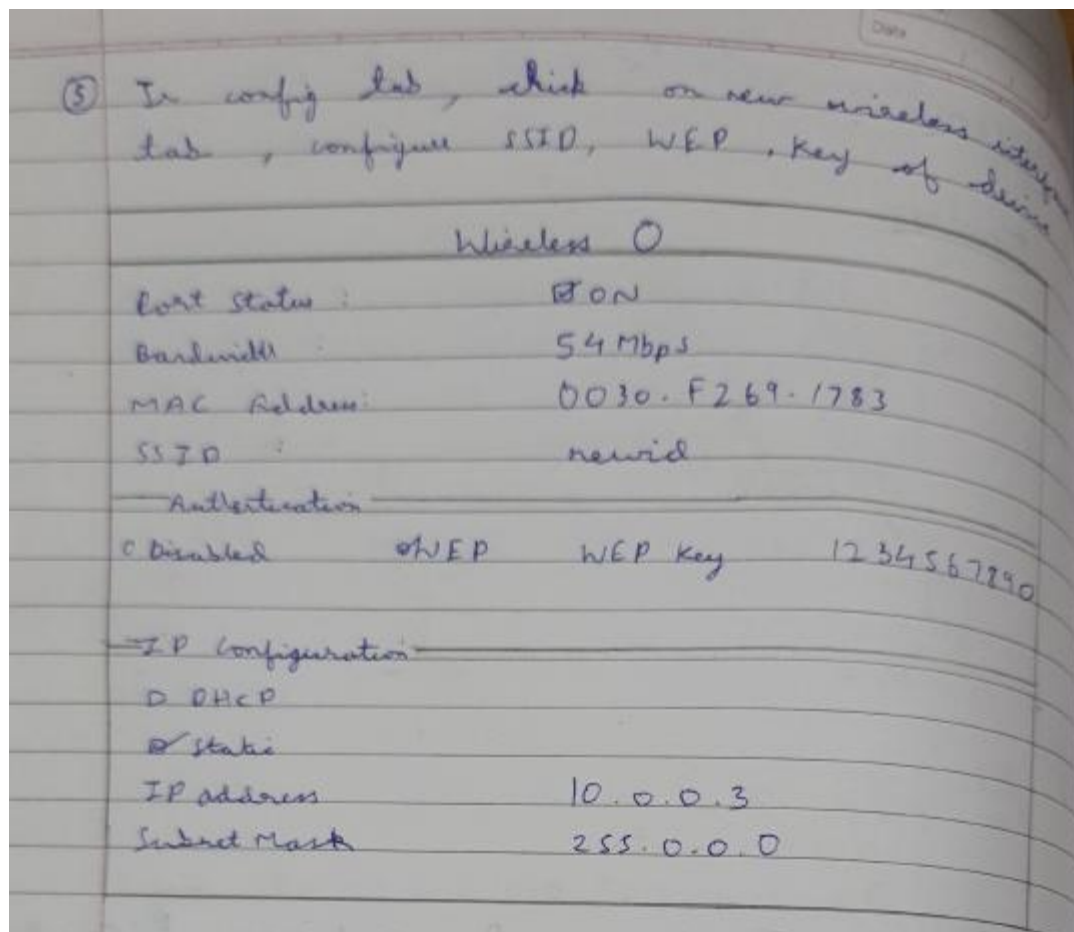 Date
⑤ In config tab, click on new wireless interface
tab, configure SSID, WEP, Key of device
Wireless 0
Port Status: ☑ ON
Bandwidth: 54 Mbps
MAC Address: 0030.F269.1783
SSID: newid
Authentication
○ Disabled WEP WEP Key 1234567890
IP Configuration
□ DHCP
☑ Static
IP address 10.0.0.3
Subnet Mask 255.0.0.0